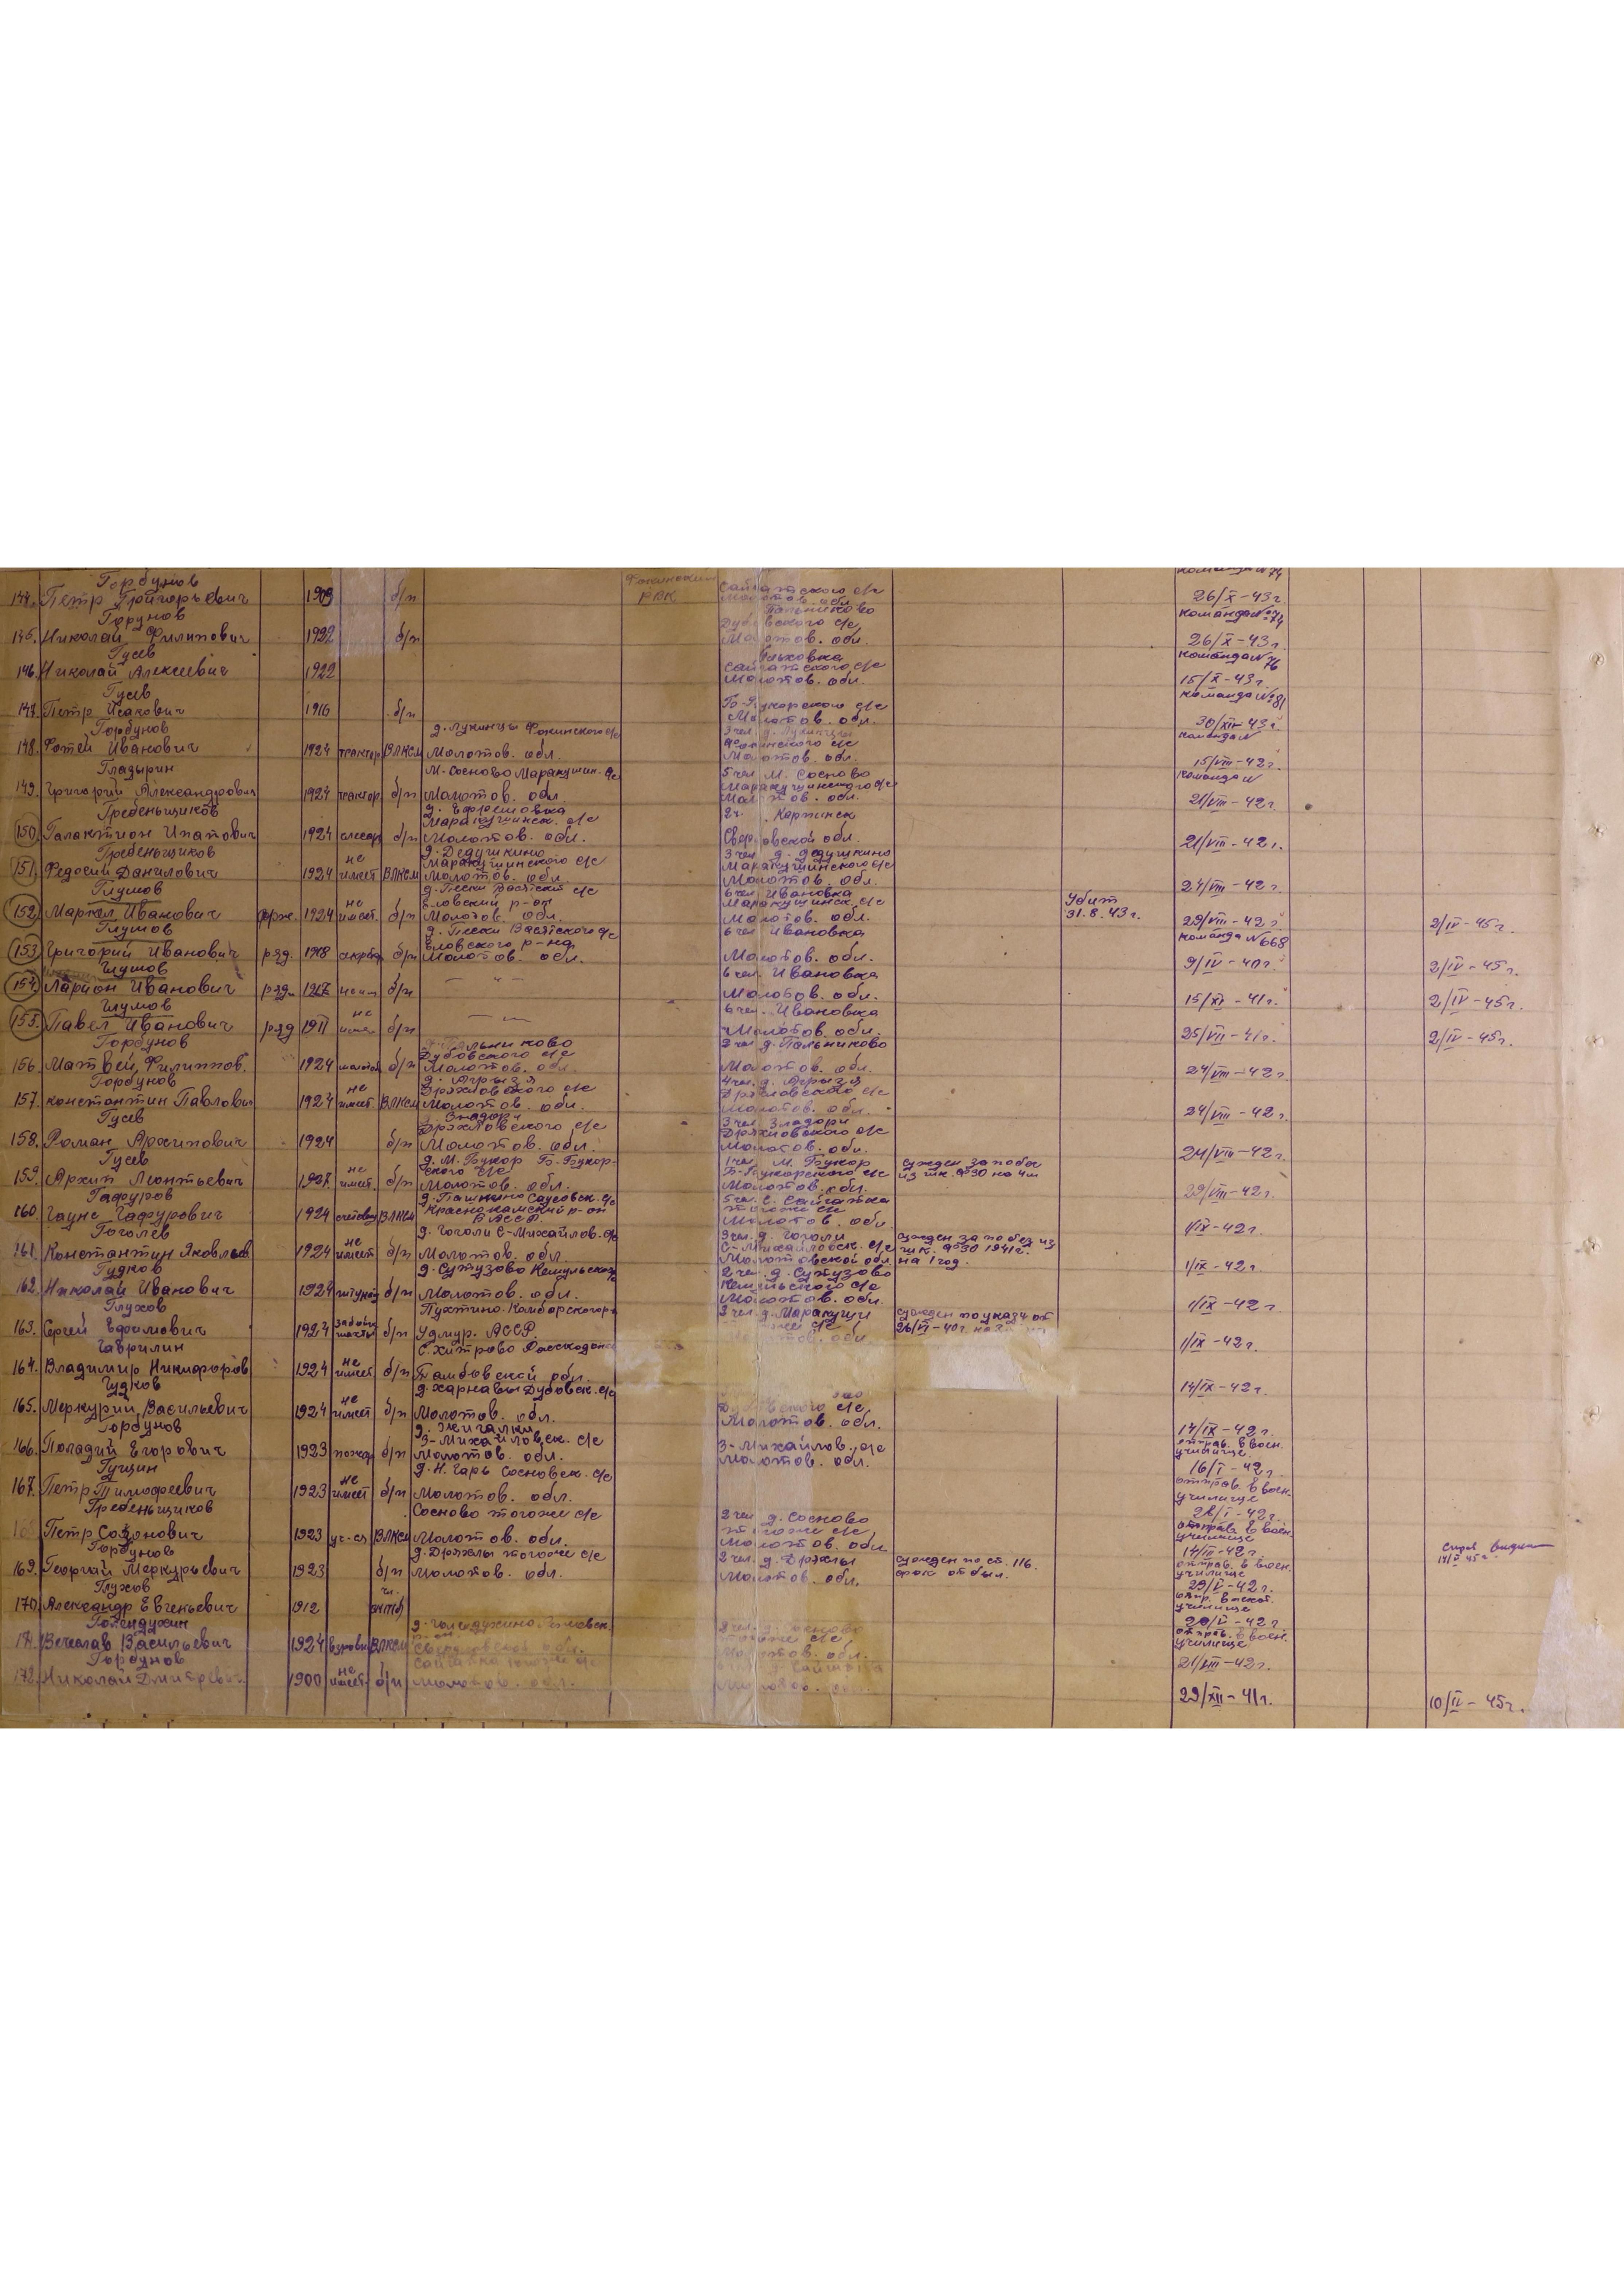 Горбунов
144. Петр Григорьевич 1909 б/п РВК Сайгатского с/с Молотов. обл. 26/X-43г.
Горбунов команда №74
145. Николай Филипович 1922 б/п Пальниково Дубовского с/с Молотов. обл. 26/X-43г.
Гусев команда №76
146. Николай Алексеевич 1922 Ольховка Сайгатского с/с Молотов. обл. 15/X-43г.
Гусев команда №81
147. Петр Исакович 1916 б/п Б-Букорского с/с Молотов. обл. 30/XII-43г.
Горбунов команда №
148. Фотей Иванович 1924 трактор ВЛКСМ д. Лукинцы Фокинского с/с Молотов. обл. 3 чел. д. Лукинцы Фокинского с/с Молотов. обл. 15/VIII-42г.
Гладырин команда №
149. Григорий Александрович 1924 трактор б/п М. Сосново Маракушин. с/с Молотов. обл. 5 чел. М. Сосново Маракушинского с/с Молотов. обл. 21/VIII-42г.
Гребеньщиков
150. Галактион Ипатович 1924 слесар б/п д. Ефремовка Маракушинск. с/с Молотов. обл. 2ч. Карпинск Свердловской обл. 21/VIII-42г.
Гребеньщиков
151. Федосий Данилович 1924 не имеет ВЛКСМ д. Дедушкино Маракушинского с/с Молотов. обл. 3 чел. д. Дедушкино Маракушинского с/с Молотов. обл. 24/VIII-42г.
Глумов
152. Маркел Иванович 1924 не имеет б/п д. Пески Васятский с/с Еловский р-он Молотов. обл. 6 чел. Ивановка Маракушинск. с/с Молотов. обл. Убит 31.8.43г. 29/VIII-42г. 2/IV-45г.
Глумов команда №668
153. Григорий Иванович ряд. 1918 б/п д. Пески Васятского с/с Еловского р-на Молотов. обл. 6 чел. Ивановка Молотов. обл. 9/IV-40г. 2/IV-45г.
Глумов
154. Ларион Иванович ряд. б/п — " 6 чел. Ивановка Молотов. обл. 15/XI-41г. 2/IV-45г.
Глумов
155. Павел Иванович ряд 1911 не имеет б/п — " — 6 чел. Ивановка Молотов. обл. 25/VII-41г. 2/IV-45г.
Горбунов
156. Матвей Филиппов. 1924 б/п д. Пальниково Дубовского с/с Молотов. обл. 3 чел. д. Пальниково Молотов. обл. 24/VIII-42г.
Горбунов
157. Константин Павлович 1924 не имеет ВЛКСМ д. Агрызя Дряхловского с/с Молотов. обл. 4 чел. д. Агрызя Дряхловского с/с Молотов. обл. 24/VIII-42г.
Гусев
158. Роман Архипович 1924 б/п Зладори Дряхловского с/с Молотов. обл. 3 чел. Зладори Дряхловского с/с Молотов. обл. 24/VIII-42г.
Гусев
159. Архип Леонтьевич не имеет б/п д. М. Букор Б-Букорского с/с Молотов. обл. 1 чел. М. Букор Б-Букорского с/с Молотов. обл. сужден за побег из шк. ФЗО на 4м 29/VIII-42г.
Гафуров
160. Гаунс Гафурович 1924 счетовод ВЛКСМ д. Пашкино Саусовск. с/с Краснокамский р-он БАССР. 5 чел. С. Сайгатка тогоже с/с Молотов. обл. 1/IX-42г.
Гоголев
161. Константин Яковлев 1924 не имеет б/п д. Гоголи С-Михайлов. с/с Молотов. обл. 3 чел. д. Гоголи С-Михайловск. с/с Молотовской обл. сужден за побег из шк. ФЗО 1941г. на 1 год. 1/IX-42г.
Гудков
162. Николай Иванович 1924 б/п д. Сутузово Кемульского Молотов. обл. 2 чел. д. Сутузово Кемульского с/с Молотов. обл. 1/IX-42г.
Глухов
163. Сергей Ефимович 1924 забой. шахты б/п Пухтино Камбарского р Удмур. АССР. 3 чел. д. Маракуши сужден по указу от 26/VI-40г. 1/IX-42г.
Гаврилин
164. Владимир Никифоров 1924 не имеет б/п С. Хитрово Тамбовской обл. 14/IX-42г.
Гудков
165. Меркурий Васильевич 1924 не имеет б/п д. Харнавы Дубовск. с/с Молотов. обл. с/с Молотов. обл. 14/IX-42г.
Горбунов отправ. в воен. училище
166. Геладий Егорович 1923 пожар б/п д. Жигалки З-Михайловск. с/с Молотов. обл. З-Михайлов. с/с Молотов. обл. 16/I-42г.
Гущин отправ. в воен. училище
167. Петр Тимофеевич 1923 не имеет б/п д. Н. Гарь Сосновск. с/с Молотов. обл. 28/I-42г.
Гребеньщиков отправ. в воен. училище
Петр Созонович 1923 уч-ся ВЛКСМ Сосново тогоже с/с Молотов. обл. 2 чел. д. Сосново тогоже с/с Молотов. обл. 14/III-42г.
Горбунов отправ. в воен. училище
169. Георгий Меркурьевич 1923 б/п д. Дряхлы тогоже с/с Молотов. обл. 2 чел. д. Дряхлы Молотов. обл. сужден по ст. 116. срок отбыл. 29/V-42г.
Глухов отпр. в воен. училище
170. Александр Евгеньевич 1912 чл. ВКП(б) 20/V-42г.
Голендухин отправ. в воен. училище
171. Вечеслав Васильевич 1924 ВЛКСМ д. Голендухино Свердловской обл. тогоже с/с Молотов. обл. 21/VIII-42г.
Горбунов
172. Николай Дмитревич. 1900 не имеет б/п Сайгатка тогоже с/с Молотов. обл. д. Сайгатка Молотов. обл. 29/XII-41г. 10/IV-45г.